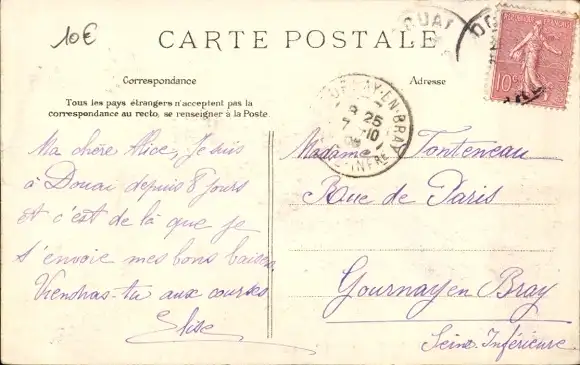 10€
CARTE POSTALE
DOUAI
RÉPUBLIQUE FRANÇAISE
10c
Correspondance
Adresse
Tous les pays étrangers n'acceptent pas la
correspondance au recto, se renseigner à la Poste
GOURNAY-EN-BRAY
8 25
7 -10
INFRE
Ma chère Alice, Je suis
à Douai depuis 8 jours
et c'est de là que je
t'envoie mes bons baisers.
Viendras-tu aux courses
Elise
Madame Fonteneau
Rue de Paris
Gournay en Bray
Seine-Inférieure